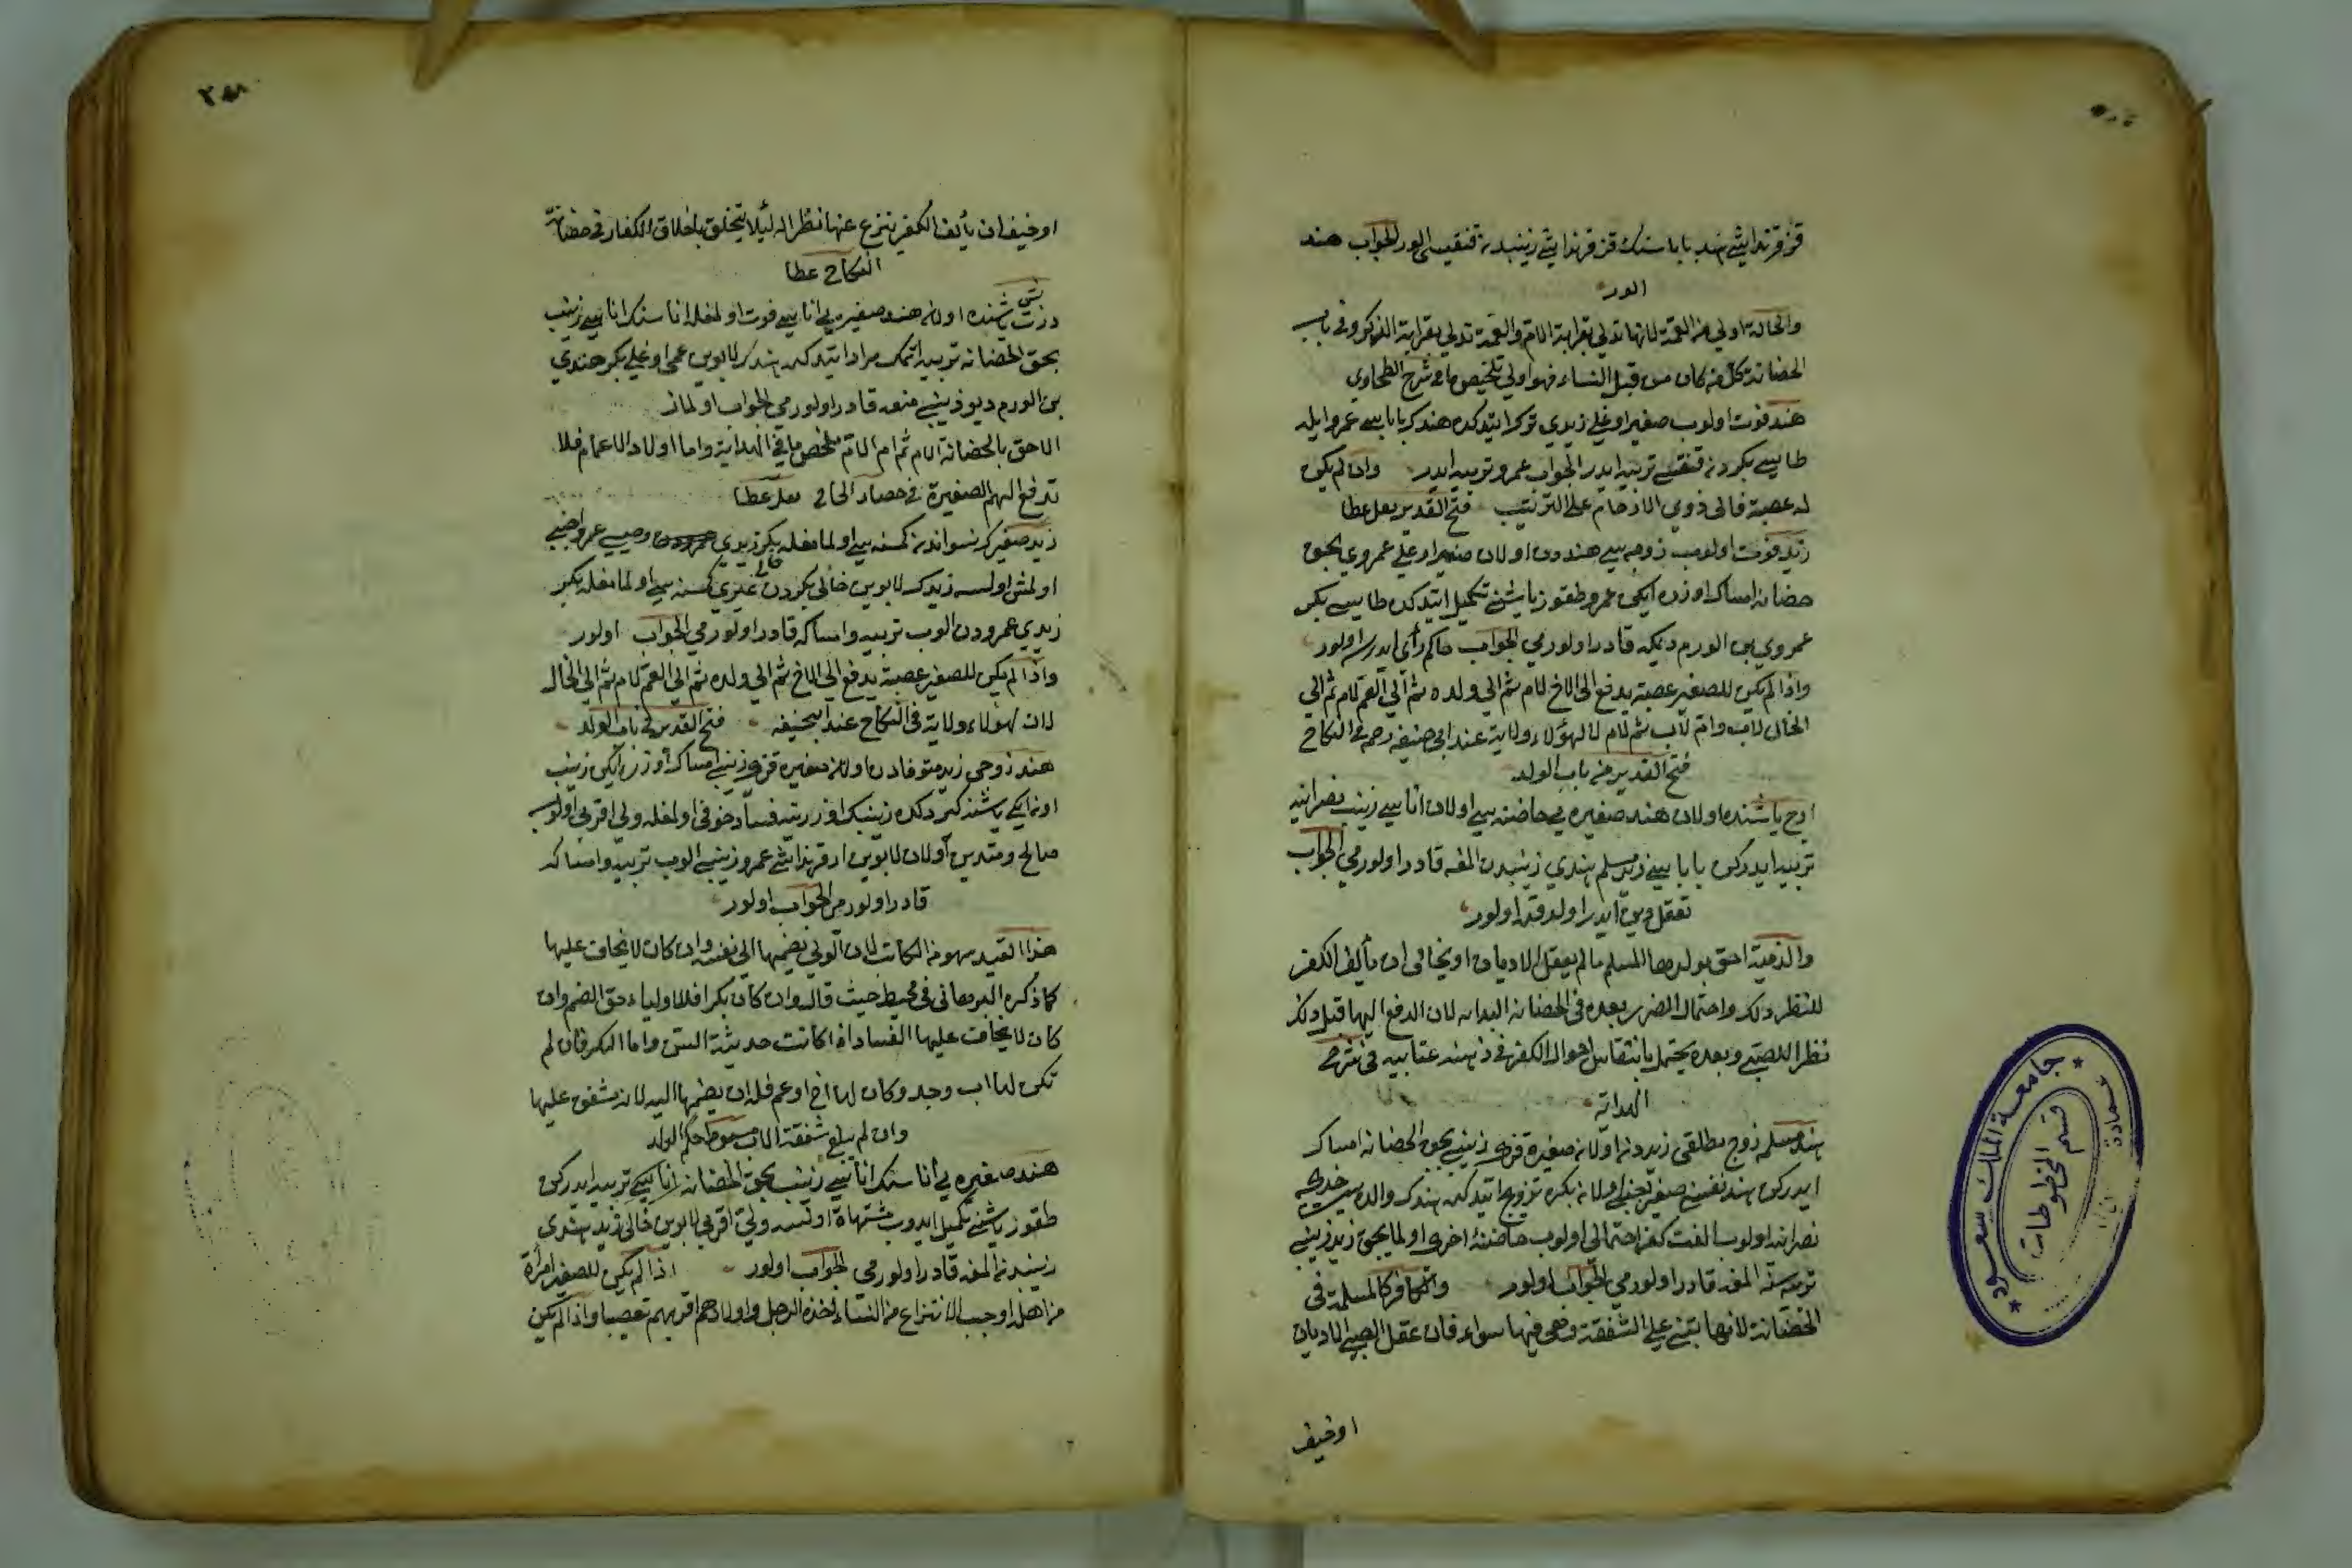 قز قرنداشى هند بابا سنك قز قرنداشى زينبدن قنغيسى الور الجواب هند
الور
والخالة اولى من العمة لانها تدلي بقرابة الام والعمة تدلي بقرابة الذكر وفي باب
الحضانة كل من كان من قبل النساء فهو اولى تلخيص ما في شرح الطحاوي
هند فوت اولوب صغير اوغلي زيدي ترك ايتدكده هندك باباسي عمرو ايله
طاييسي بكردن قنغيسي تربيه ايدر الجواب عمرو تربيه ايدر وان لم يكن
له عصبة فالى ذوي الارحام على الترتيب فتح القدير بعل عطا
زيد فوت اولوب زوجه سي هنددن اولان صغير اوغلي عمروي بحق
حضانه امساك اوزره ايكن عمرو طقوز ياشنى تكميل ايتدكده طاييسي بكر
عمروي بن الورم ديكه قادر اولورمي الجواب حاكم رأى ايدرسه اولور
واذا لم يكن للصغير عصبة يدفع الى الاخ لام ثم الى ولده ثم الى العم لام ثم الى
الخال لاب وام ثم لاب ثم لام لان لهؤلاء ولاية عند ابي حنيفه رحمه في النكاح
فتح القدير من باب الولد
اوج ياشنده اولان هند صغيره يي حاضنه سي اولان اناسي زينب نصرانيه
تربيه ايدركن باباسي زيد مسلم هندي زينبدن المغه قادر اولورمي الجواب
تعقل دين ايدر اولدقده اولور
والذمية احق بولدها المسلم ما لم يعقل الاديان او يخاف ان يألف الكفر
للنظر ذلك واحتمال الضرر بعده في الحضانة الهدايه لان الدفع اليها قبل ذلك
نظرا للصبي وبعده يحتمل بانتقاش احوال الكفر في ذهنه عنايه في شرح
الهداية
هند مسلمه زوج مطلقي زيددن اولان صغيره قزى زينبي بحق الحضانه امساك
ايدركن هند نفسني صغيره اجنبي اولان بكره تزويج ايتدكده هندك والده سي خديجه
نصرانيه اولوب الفت كفر احتمالي اولوب حاضنه اخرى اولمايجق زيد زينبي
خديجه دن المغه قادر اولورمي الجواب اولور والكافر كالمسلمة في
الحضانة لانها تبتنى على الشفقة وهي فيها سواء فان عقل الصبي الاديان
او خيف
او خيف ان يألف الكفر ينزع عنها نظرا له لئلا يتخلق باخلاق الكفار في حضانة
النكاح عطا
درت بش ياشنده اولان هند صغيره يي اناسي فوت اولمغله اناسنك اناسي زينب
بحق الحضانه تربيه اتمك مراد ايتدكده هندك لابوين عمي اوغلي بكر هندي
بن الورم ديو زينبي منعه قادر اولورمي الجواب اولماز
الاحق بالحضانة الام ثم ام الام ملخص ما في الهداية واما اولاد الاعمام فلا
تدفع اليهم الصغيرة في حصاد الحاج بعل عطا
زيد صغيرك نسواندن كمسنه سي اولمامغله بكر زيدي وصيسي عمرو اجنبي
اولمش اولسه زيدك لابوين خالى بكردن غيري كمسنه سي اولمامغله بكر
زيدي عمرودن الوب تربيه وامساكه قادر اولورمي الجواب اولور
واذا لم يكن للصغير عصبة يدفع الى الاخ ثم الى ولده ثم الى العم لام ثم الى الخال
لان لهؤلاء ولاية في النكاح عند ابيحنيفه فتح القدير في باب الولد
هند زوجى زيد متوفادن اولان صغيره قزى زينبي امساك اوزره ايكن زينب
اون ايكي ياشنه كيردكده زينبك اوزرينه فساد خوفى اولمغله ولي اقربى اولوب
صالح ومتدين اولان لابوين ار قرنداشى عمرو زينبي الوب تربيه وامساكه
قادر اولورمي الجواب اولور
هذا القيد سهو من الكاتب لان الولي يضمها الى نفسه وان كان لا يخاف عليها
كما ذكره البرهاني في محيط حيث قال وان كان بكرا فللاولياء حق الضم وان
كان لا يخاف عليها الفساد اذا كانت حديثة السن واما البكر فان لم
تكن لها اب وجد وكان لها اخ او عم فله ان يضمها اليه لانه مشفق عليها
وان لم يبلغ شفقة الاب مبسوط حكم الولد
هند صغيره يي اناسنك اناسي زينب بحق الحضانه تربيه ايدركن
طقوز ياشنى تكميل ايدوب مشتهاة اولسه ولي اقربى لابوين خالى زيد هندي
زينبدن المغه قادر اولورمي الجواب اولور اذا لم يكن للصغير امرأة
من اهله اوجب الانتزاع من النساء اخذه الرجل واولادهم اقربهم تعصيبا واذا لم يكن
جامعة الملك سعود
عمادة
قسم المخطوطات